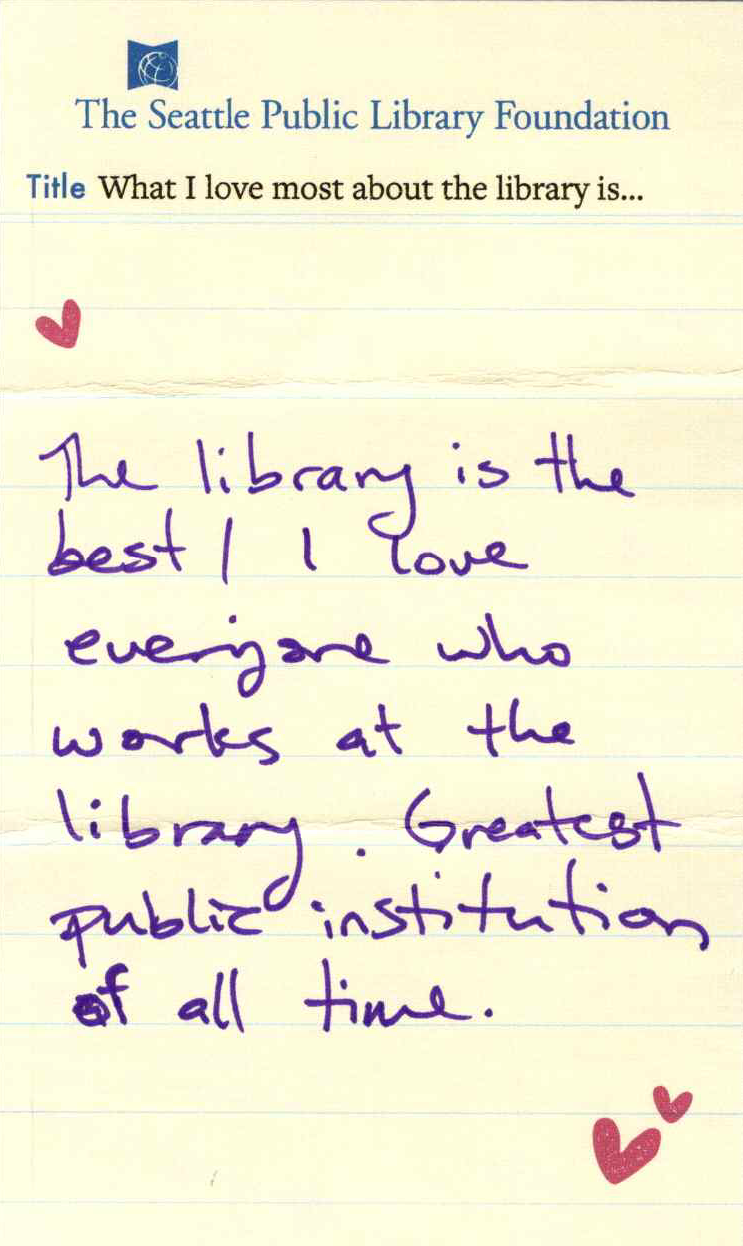 The Seattle Public Library Foundation
Title What I love most about the library is...
The library is the
best! I love
everyone who
works at the
library. Greatest
public institution
of all time.